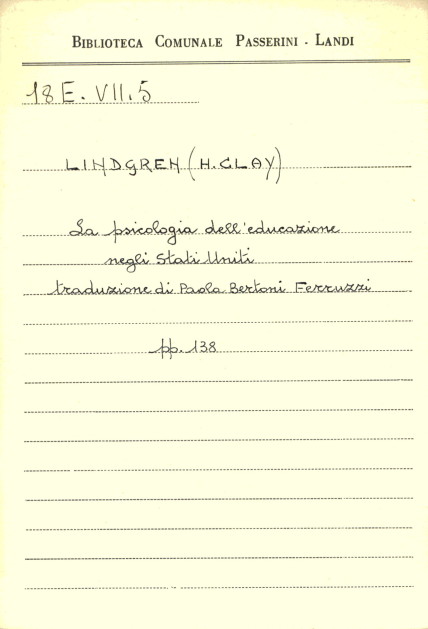 BIBLIOTECA COMUNALE PASSERINI - LANDI
18 E. VII.5
LINDGREN (H. CLAY)
La psicologia dell'educazione
negli Stati Uniti
traduzione di Paola Bertoni Ferruzzi
pp. 138